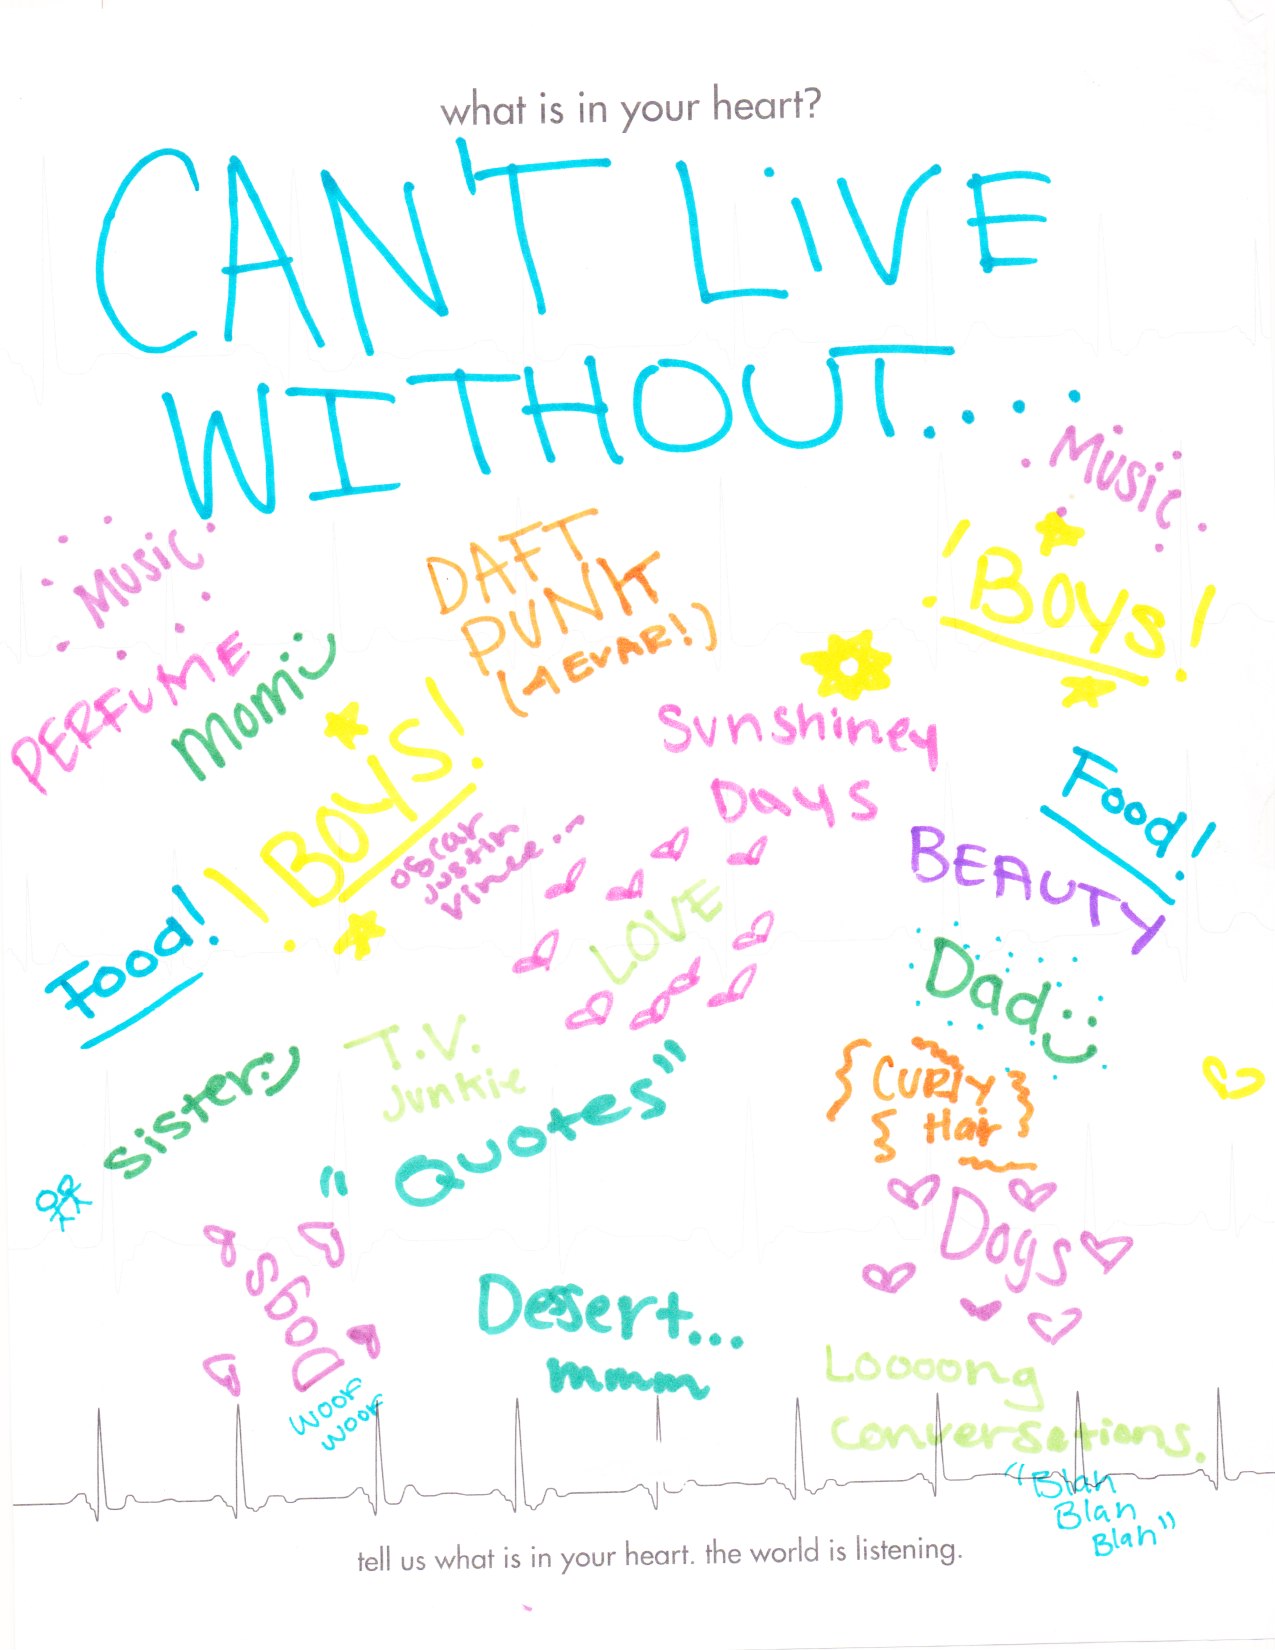 what is in your heart?
CAN'T LiVE
WITHOUT....
Music
Music
DAFT
PUNK
(4 EVAR!)
! BOYS!
PERFUME
Mom :)
Sunshiney
Days
! BOYS!
oscar
justin
vince...
Food!
BEAUTY
Food!
LOVE
Dad :)
T.V.
Junkie
{ CURLY }
{ Hair }
sister :)
" Quotes "
Dogs
Dogs
woof
woof
Dessert...
mmmm
Loooong
conversations.
"Blah
Blah
Blah"
tell us what is in your heart. the world is listening.